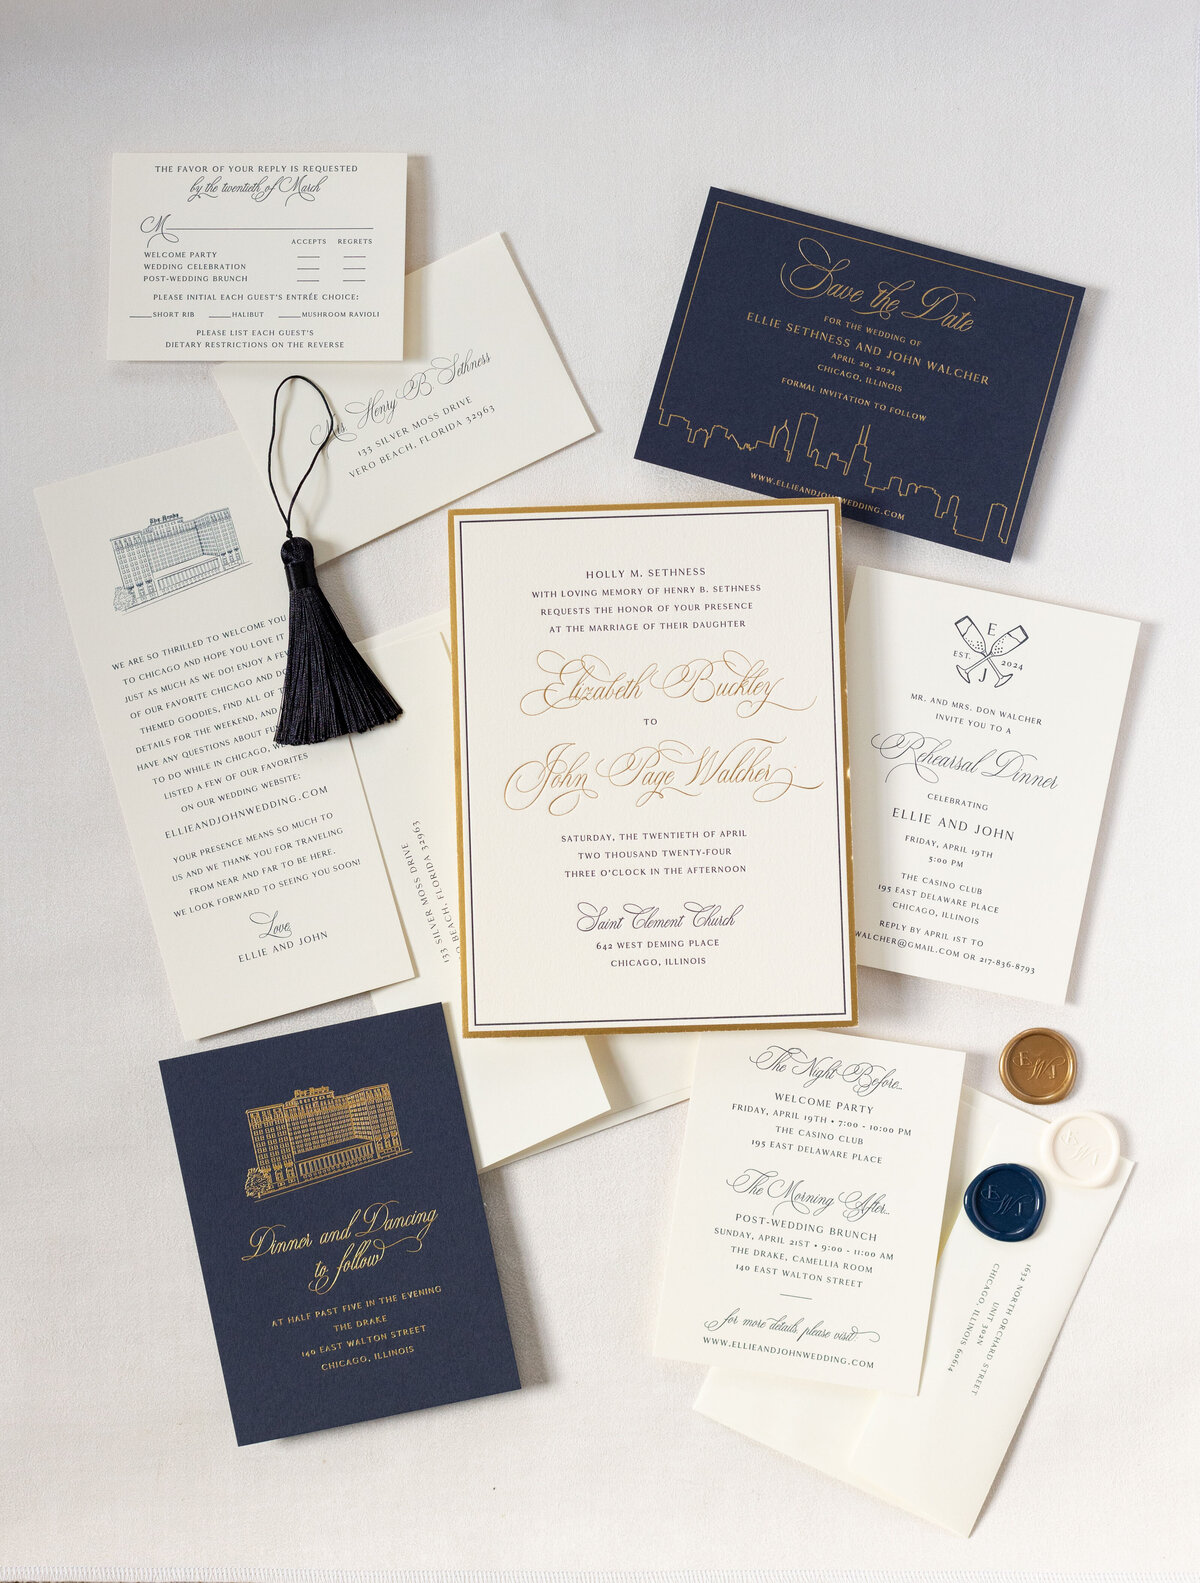 THE FAVOR OF YOUR REPLY IS REQUESTED
by the twentieth of March
M
ACCEPTS REGRETS
WELCOME PARTY
WEDDING CELEBRATION
POST-WEDDING BRUNCH
PLEASE INITIAL EACH GUEST'S ENTRÉE CHOICE:
SHORT RIB HALIBUT MUSHROOM RAVIOLI
PLEASE LIST EACH GUEST'S
DIETARY RESTRICTIONS ON THE REVERSE
Mrs. Henry B Sethness
133 SILVER MOSS DRIVE
VERO BEACH, FLORIDA 32963
Save the Date
FOR THE WEDDING OF
ELLIE SETHNESS AND JOHN WALCHER
APRIL 20, 2024
CHICAGO, ILLINOIS
FORMAL INVITATION TO FOLLOW
WWW.ELLIEANDJOHNWEDDING.COM
The Drake
WE ARE SO THRILLED TO WELCOME YOU
TO CHICAGO AND HOPE YOU LOVE IT
JUST AS MUCH AS WE DO! ENJOY A FEW
OF OUR FAVORITE CHICAGO AND
THEMED GOODIES, FIND ALL OF
DETAILS FOR THE WEEKEND, AND
HAVE ANY QUESTIONS ABOUT
TO DO WHILE IN CHICAGO,
LISTED A FEW OF OUR FAVORITES
ON OUR WEDDING WEBSITE:
ELLIEANDJOHNWEDDING.COM
YOUR PRESENCE MEANS SO MUCH TO
US AND WE THANK YOU FOR TRAVELING
FROM NEAR AND FAR TO BE HERE.
WE LOOK FORWARD TO SEEING YOU SOON!
Love,
ELLIE AND JOHN
133 SILVER MOSS DRIVE
BEACH, FLORIDA 32963
HOLLY M. SETHNESS
WITH LOVING MEMORY OF HENRY B. SETHNESS
REQUESTS THE HONOR OF YOUR PRESENCE
AT THE MARRIAGE OF THEIR DAUGHTER
Elizabeth Buckley
TO
John Page Walcher
SATURDAY, THE TWENTIETH OF APRIL
TWO THOUSAND TWENTY-FOUR
THREE O'CLOCK IN THE AFTERNOON
Saint Clement Church
642 WEST DEMING PLACE
CHICAGO, ILLINOIS
E
EST. 2024
J
MR. AND MRS. DON WALCHER
INVITE YOU TO A
Rehearsal Dinner
CELEBRATING
ELLIE AND JOHN
FRIDAY, APRIL 19TH
5:00 PM
THE CASINO CLUB
195 EAST DELAWARE PLACE
CHICAGO, ILLINOIS
REPLY BY APRIL 1ST TO
WALCHER@GMAIL.COM OR 217-836-8793
The Drake
Dinner and Dancing
to follow
AT HALF PAST FIVE IN THE EVENING
THE DRAKE
140 EAST WALTON STREET
CHICAGO, ILLINOIS
The Night Before...
WELCOME PARTY
FRIDAY, APRIL 19TH • 7:00 - 10:00 PM
THE CASINO CLUB
195 EAST DELAWARE PLACE
The Morning After...
POST-WEDDING BRUNCH
SUNDAY, APRIL 21ST • 9:00 - 11:00 AM
THE DRAKE, CAMELLIA ROOM
140 EAST WALTON STREET
for more details, please visit
WWW.ELLIEANDJOHNWEDDING.COM
EWJ
EWJ
1632 NORTH ORCHARD STREET
UNIT 302N
CHICAGO, ILLINOIS 60614